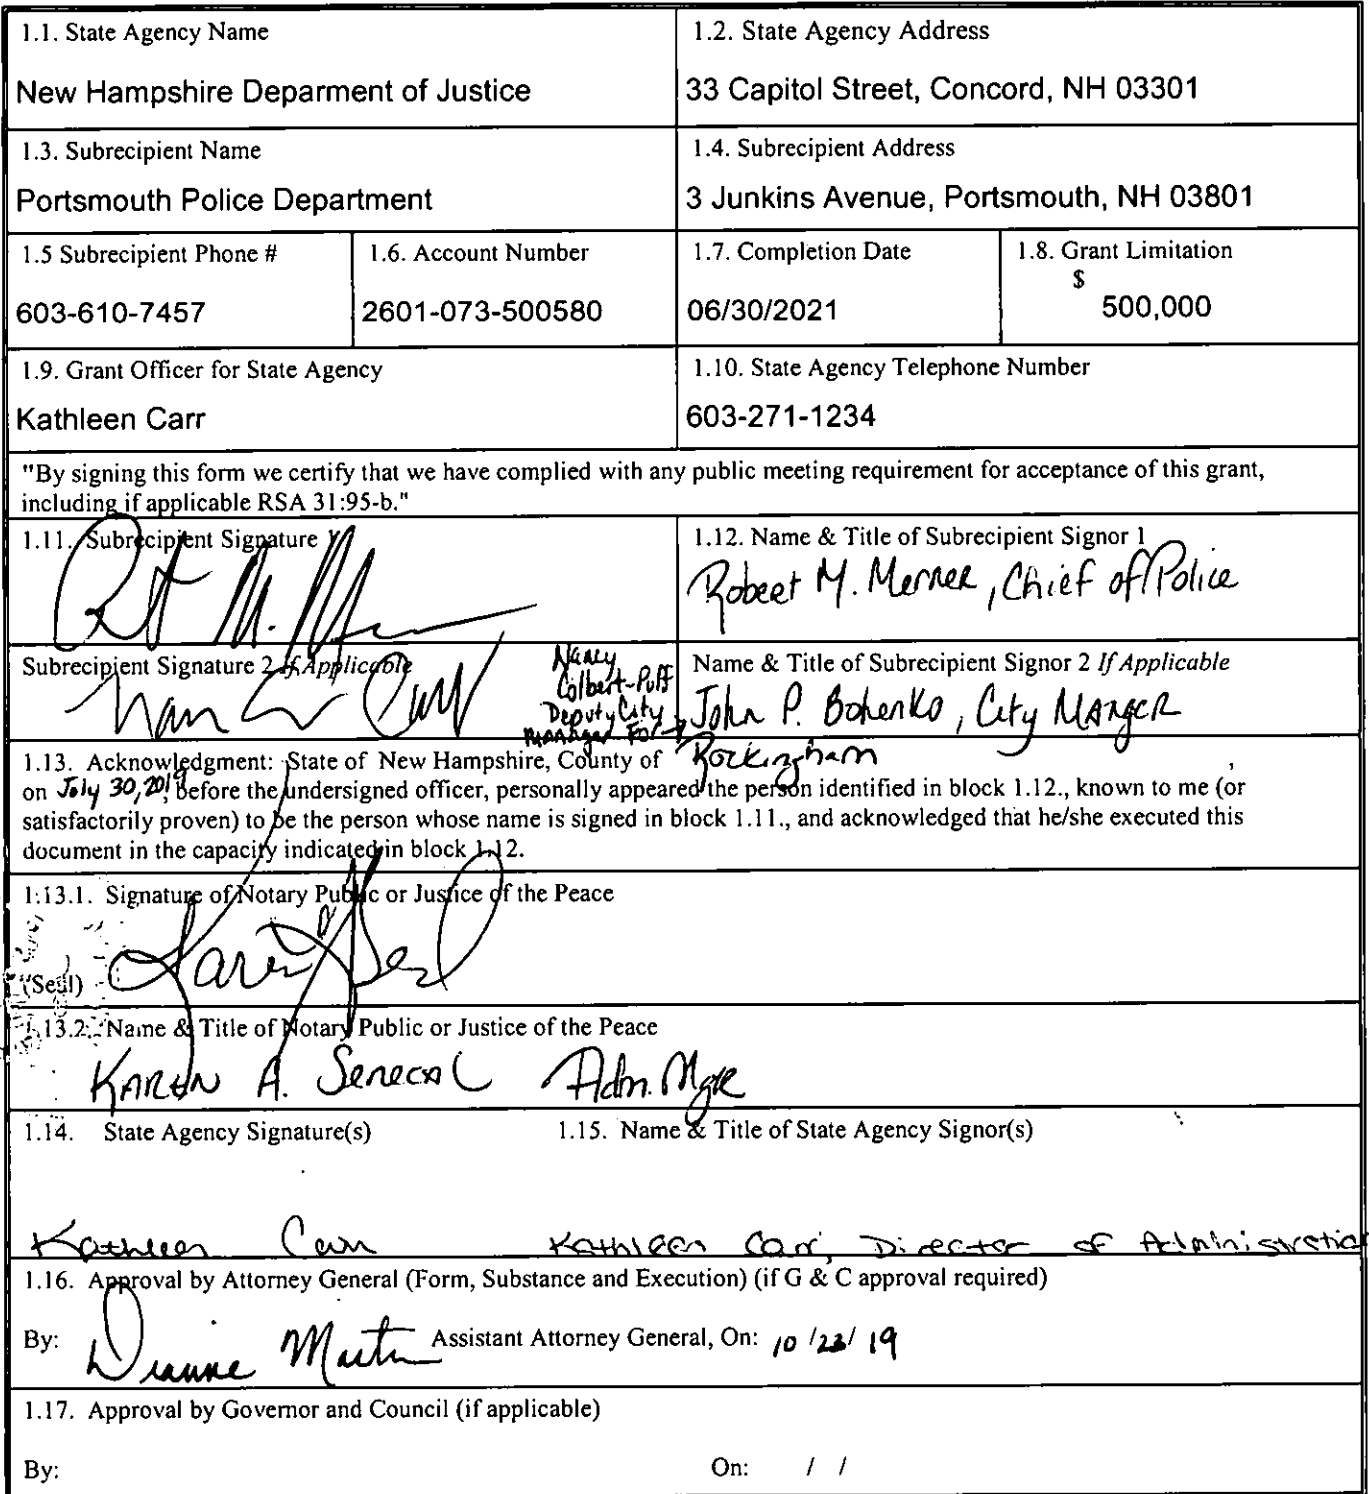 1.1. State Agency Name
New Hampshire Deparment of Justice
1.2. State Agency Address
33 Capitol Street, Concord, NH 03301
1.3. Subrecipient Name
Portsmouth Police Department
1.4. Subrecipient Address
3 Junkins Avenue, Portsmouth, NH 03801
1.5 Subrecipient Phone #
603-610-7457
1.6. Account Number
2601-073-500580
1.7. Completion Date
06/30/2021
1.8. Grant Limitation
$ 500,000
1.9. Grant Officer for State Agency
Kathleen Carr
1.10. State Agency Telephone Number
603-271-1234
"By signing this form we certify that we have complied with any public meeting requirement for acceptance of this grant,
including if applicable RSA 31:95-b."
1.11. Subrecipient Signature 1
1.12. Name & Title of Subrecipient Signor 1
Robert M. Merner, Chief of Police
Subrecipient Signature 2 If Applicable
Nancy
Colbert-Puff
Deputy City
Manager For
Name & Title of Subrecipient Signor 2 If Applicable
John P. Bohenko, City Manger
1.13. Acknowledgment: State of New Hampshire, County of Rockingham ,
on July 30, 2019, before the undersigned officer, personally appeared the person identified in block 1.12., known to me (or
satisfactorily proven) to be the person whose name is signed in block 1.11., and acknowledged that he/she executed this
document in the capacity indicated in block 1.12.
1.13.1. Signature of Notary Public or Justice of the Peace
(Seal)
1.13.2. Name & Title of Notary Public or Justice of the Peace
Karen A. Senecal Adm. Mgr
1.14. State Agency Signature(s)
1.15. Name & Title of State Agency Signor(s)
Kathleen Carr
Kathleen Carr, Director of Administration
1.16. Approval by Attorney General (Form, Substance and Execution) (if G & C approval required)
By: Dianne Martin Assistant Attorney General, On: 10/23/19
1.17. Approval by Governor and Council (if applicable)
By: On: / /